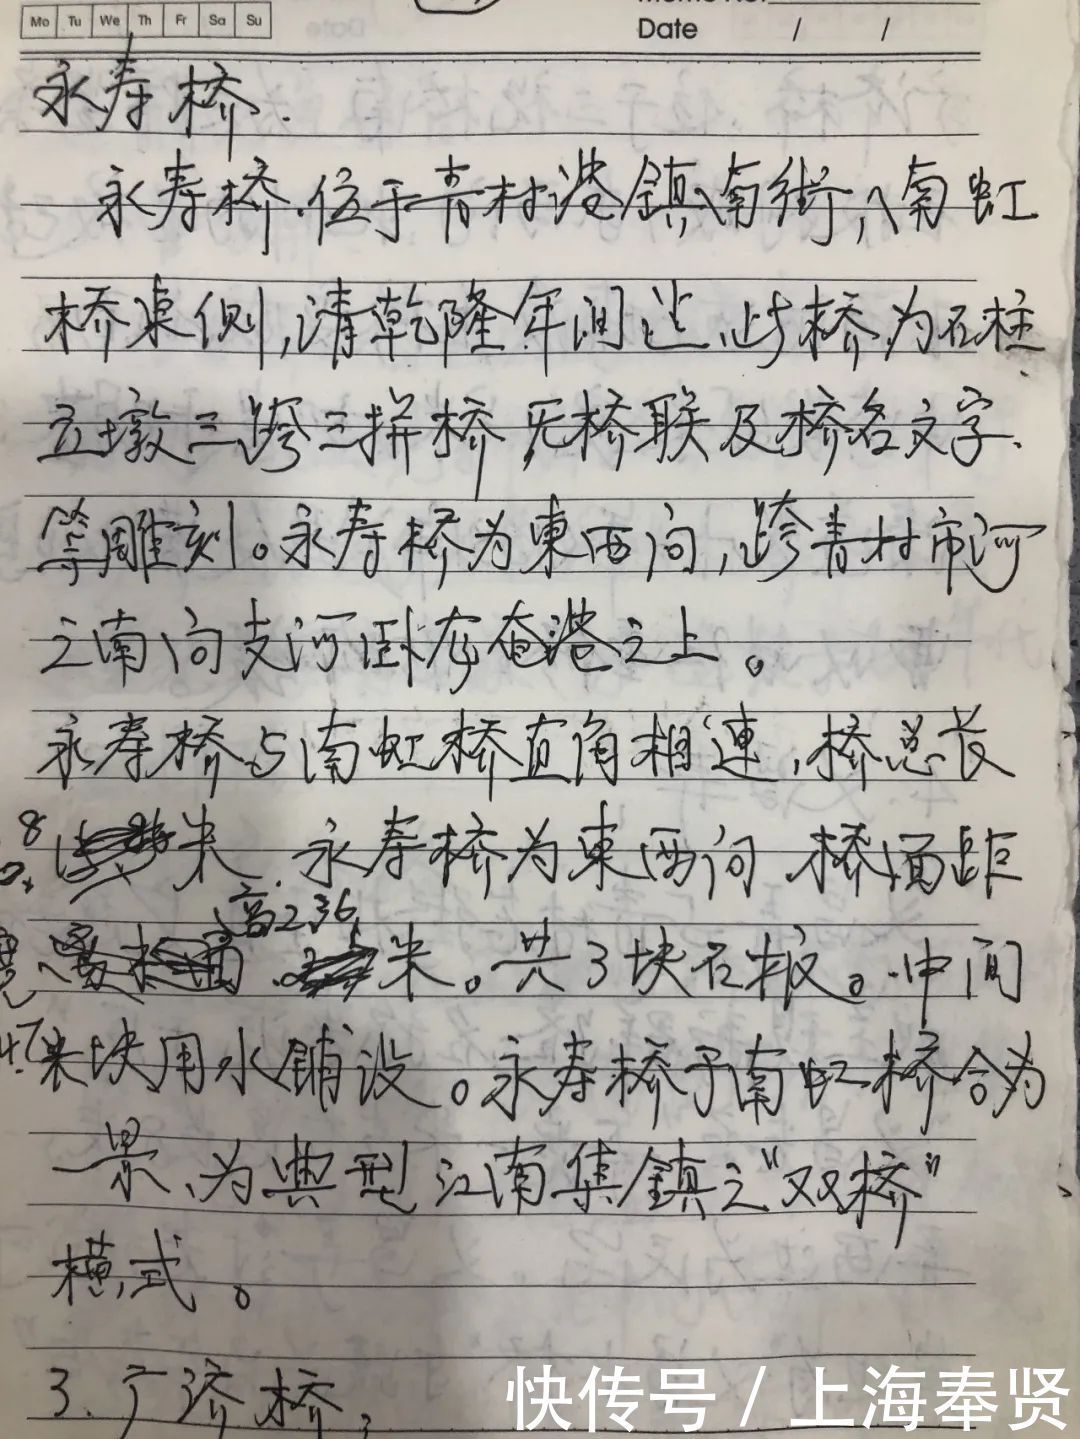 Mo Tu We Th Fr Sa Su
Date / /
永寿桥.
永寿桥.位于青村港鎮南街,南虹
桥東侧,清乾隆年间造.此桥为石柱
立墩三跨三拼桥 无桥联及桥名文字.
等雕刻。永寿桥为東西向,跨青村市河
之南向支河卧龙庵港之上。
永寿桥与南虹桥直角相連,桥总长
8 米.永寿桥为東西向 桥面距
高2.36米。共3块石板。中间
块用水铺设。永寿桥于南虹桥合为
一景、为典型江南集鎮之"双桥"
模式。
3.广济桥,
快传号/上海奉贤